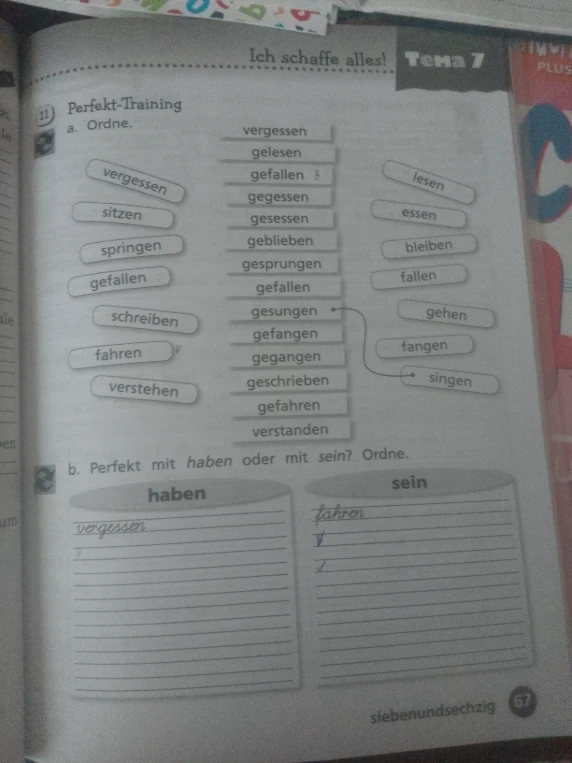 Ich schaffe alles! Тема 7
PLUS
11 Perfekt-Training
a. Ordne.
vergessen
gelesen
gefallen
gegessen
gesessen
geblieben
gesprungen
gefallen
gesungen
gefangen
gegangen
geschrieben
gefahren
verstanden
vergessen
sitzen
springen
gefallen
schreiben
fahren
verstehen
lesen
essen
bleiben
fallen
gehen
fangen
singen
b. Perfekt mit haben oder mit sein? Ordne.
haben
vergessen
sein
fahren
siebenundsechzig 67